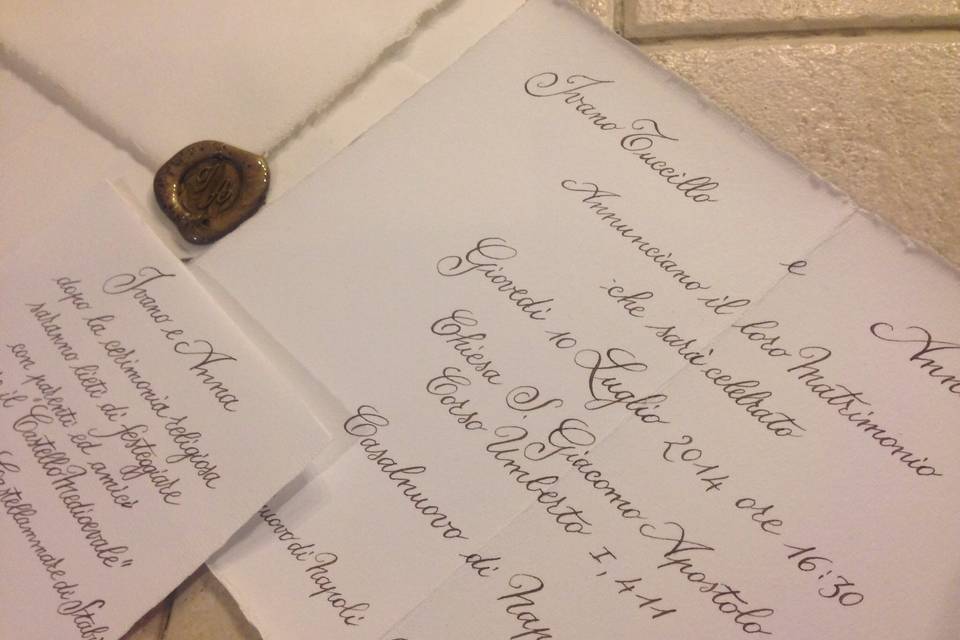 Ivano Tuccillo
e
Ann
Annunciano il loro Matrimonio
che sarà celebrato
Giovedì 10 Luglio 2014 ore 16:30
Chiesa S. Giacomo Apostolo
Corso Umberto I, 411
Casalnuovo di Nap
Ivano e Anna
dopo la cerimonia religiosa
saranno lieti di festeggiare
con parenti ed amici
il "Castello Medioevale"
Castellammare di Stabi
uovo di Napoli